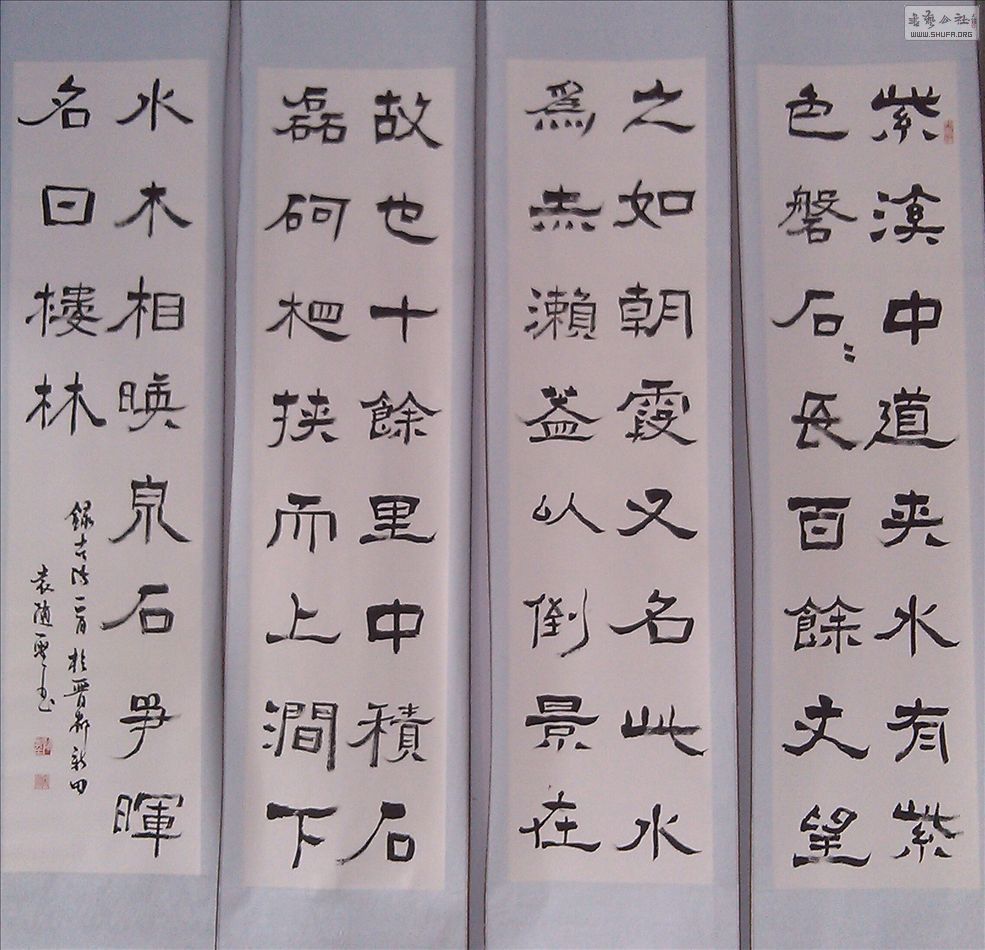 紫溪中道夾水有紫
色磐石〻長百餘丈望
之如朝霞又名此水
為赤瀨蓋以倒景在
故也十餘里中積石
磊砢相挾而上澗下
水木相暎泉石爭暉
名曰樓林
於晋都新田
袁随雲书
書藝公社
WWW.SHUFA.ORG